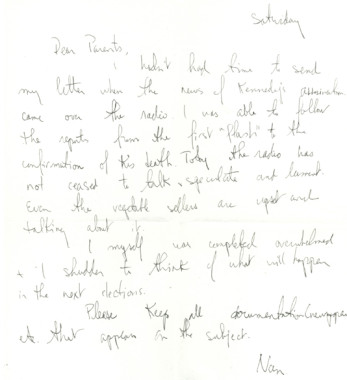 Saturday
Dear Parents,
I hadn't had time to send
my letter when the news of Kennedy's assassination
came over the radio. I was able to follow
the reports from the first "flash" to the
confirmation of his death. Today the radio has
not ceased to talk, speculate and lament.
Even the vegetable sellers are upset and
talking about it.
I myself was completed overwhelmed
+ I shudder to think of what will happen
in the next elections.
Please keep all documentation (newspapers
etc. that appears on the subject.
Nan